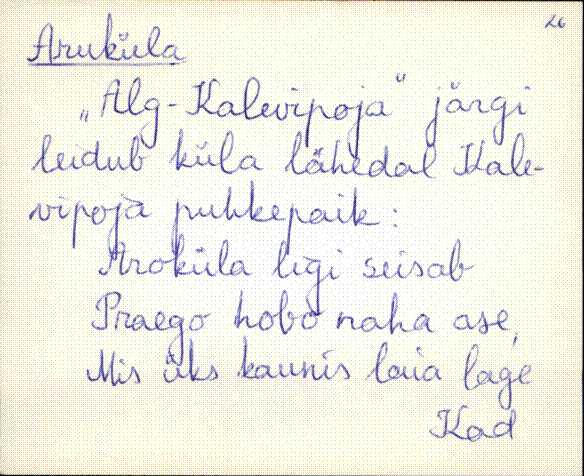 26
Aruküla
„Alg-Kalevipoja" järgi
leidub küla lähedal Kale-
vipoja puhkepaik:
Aroküla ligi seisab
Praego hobo naha ase,
Mis üks kaunis laia lage
Kad